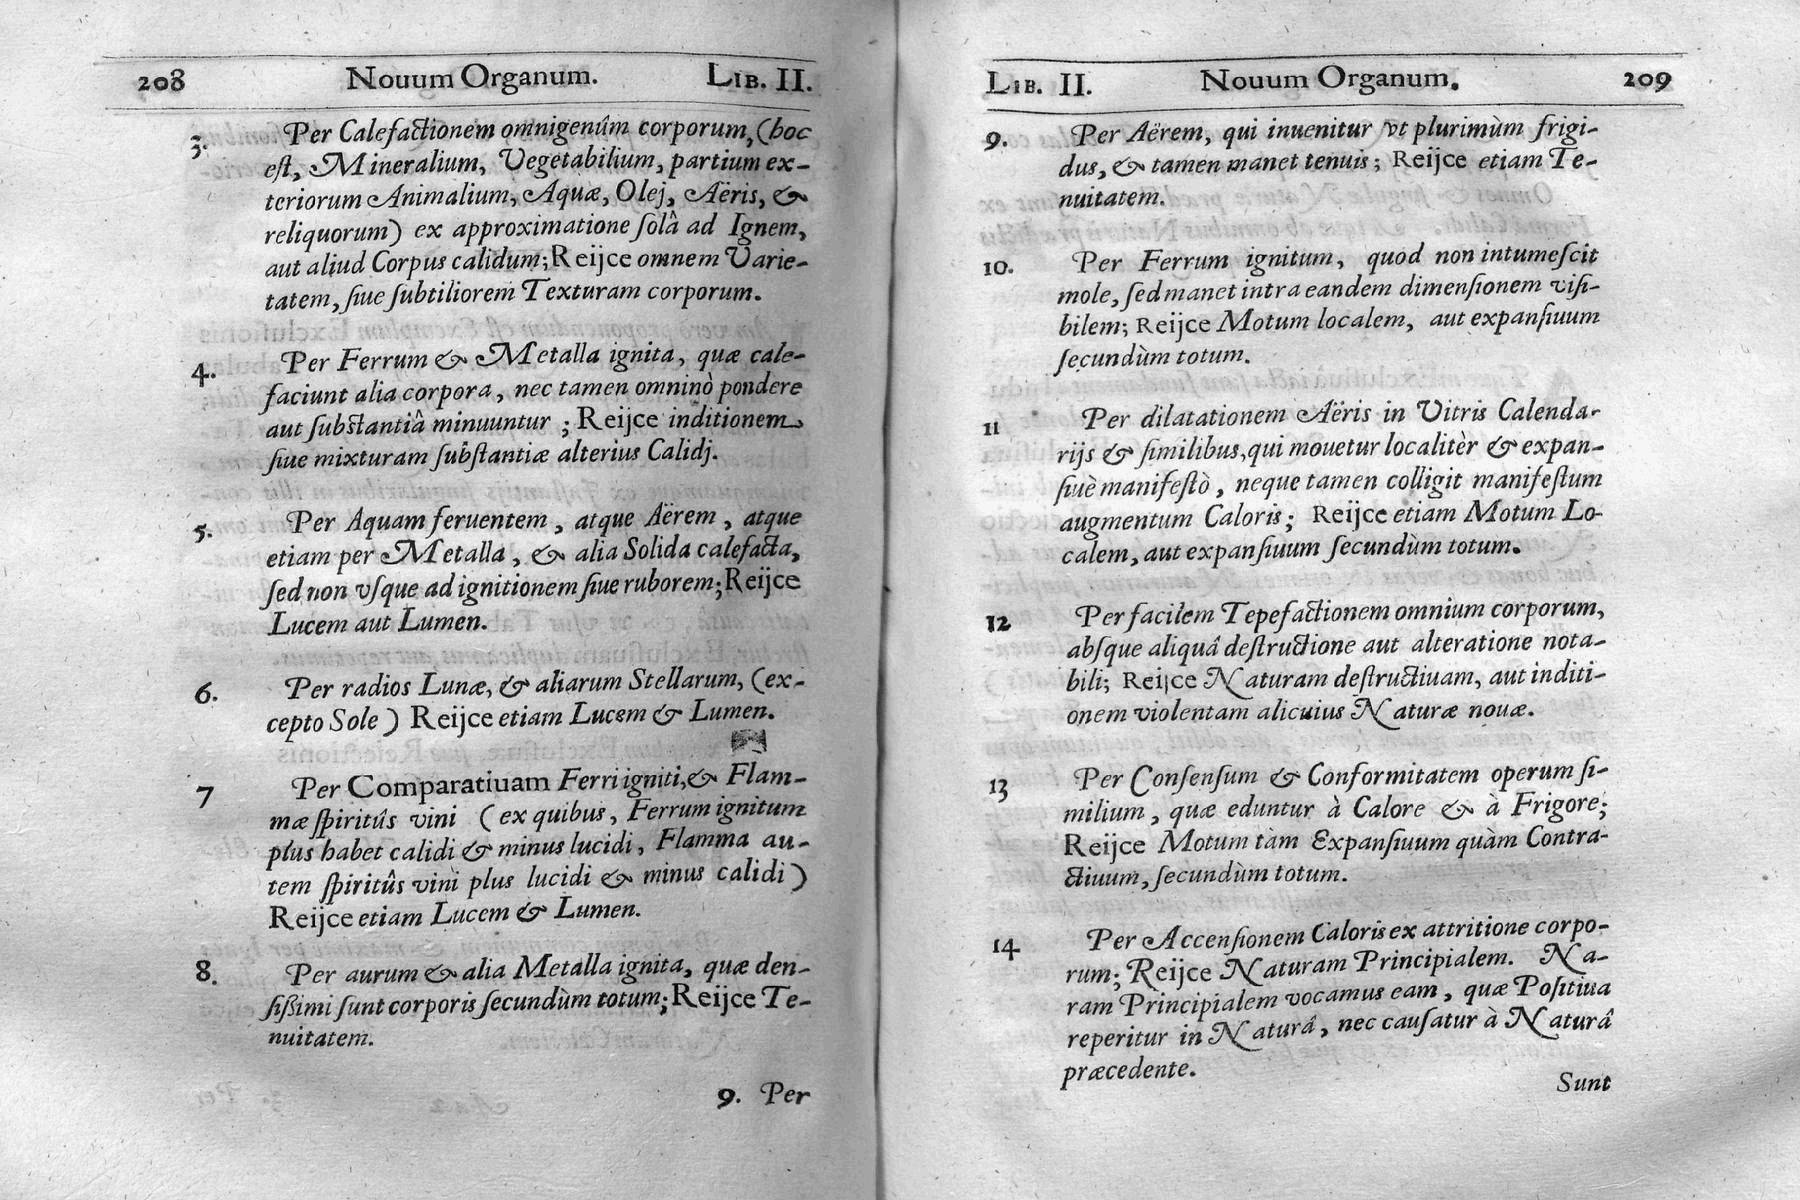 208 Nouum Organum. LIB. II.
3. Per Calefactionem omnigenûm corporum, (hoc
eſt, Mineralium, Vegetabilium, partium ex-
teriorum Animalium, Aquæ, Olej, Aëris, &
reliquorum) ex approximatione ſolâ ad Ignem,
aut aliud Corpus calidum; Reijce omnem Varie-
tatem, ſiue ſubtiliorem Texturam corporum.
4. Per Ferrum & Metalla ignita, quæ cale-
faciunt alia corpora, nec tamen omninò pondere
aut ſubſtantiâ minuuntur ; Reijce inditionem
ſiue mixturam ſubſtantiæ alterius Calidj.
5. Per Aquam feruentem, atque Aërem, atque
etiam per Metalla, & alia Solida calefacta,
ſed non vſque ad ignitionem ſiue ruborem; Reijce
Lucem aut Lumen.
6. Per radios Lunæ, & aliarum Stellarum, (ex-
cepto Sole) Reijce etiam Lucem & Lumen.
7 Per Comparatiuam Ferri igniti, & Flam-
mæ ſpiritûs vini (ex quibus, Ferrum ignitum
plus habet calidi & minus lucidi, Flamma au-
tem ſpiritûs vini plus lucidi & minus calidi)
Reijce etiam Lucem & Lumen.
8. Per aurum & alia Metalla ignita, quæ den-
ſißimi ſunt corporis ſecundùm totum; Reijce Te-
nuitatem.
9. Per
LIB. II. Nouum Organum. 209
9. Per Aërem, qui inuenitur vt plurimùm frigi-
dus, & tamen manet tenuis; Reijce etiam Te-
nuitatem.
10. Per Ferrum ignitum, quod non intumeſcit
mole, ſed manet intra eandem dimenſionem viſi-
bilem; Reijce Motum localem, aut expanſiuum
ſecundùm totum.
11 Per dilatationem Aëris in Vitris Calenda-
rijs & ſimilibus, qui mouetur localitèr & expan-
ſiuè manifeſtò, neque tamen colligit manifeſtum
augmentum Caloris; Reijce etiam Motum Lo-
calem, aut expanſiuum ſecundùm totum.
12 Per facilem Tepefactionem omnium corporum,
abſque aliquâ deſtructione aut alteratione nota-
bili; Reijce Naturam deſtructiuam, aut inditi-
onem violentam alicuius Naturæ nouæ.
13 Per Conſenſum & Conformitatem operum ſi-
milium, quæ eduntur à Calore & à Frigore;
Reijce Motum tàm Expanſiuum quàm Contra-
ctiuum, ſecundùm totum.
14 Per Accenſionem Caloris ex attritione corpo-
rum; Reijce Naturam Principialem. Na-
ram Principialem vocamus eam, quæ Poſitiua
reperitur in Naturâ, nec cauſatur à Naturâ
præcedente.
Sunt